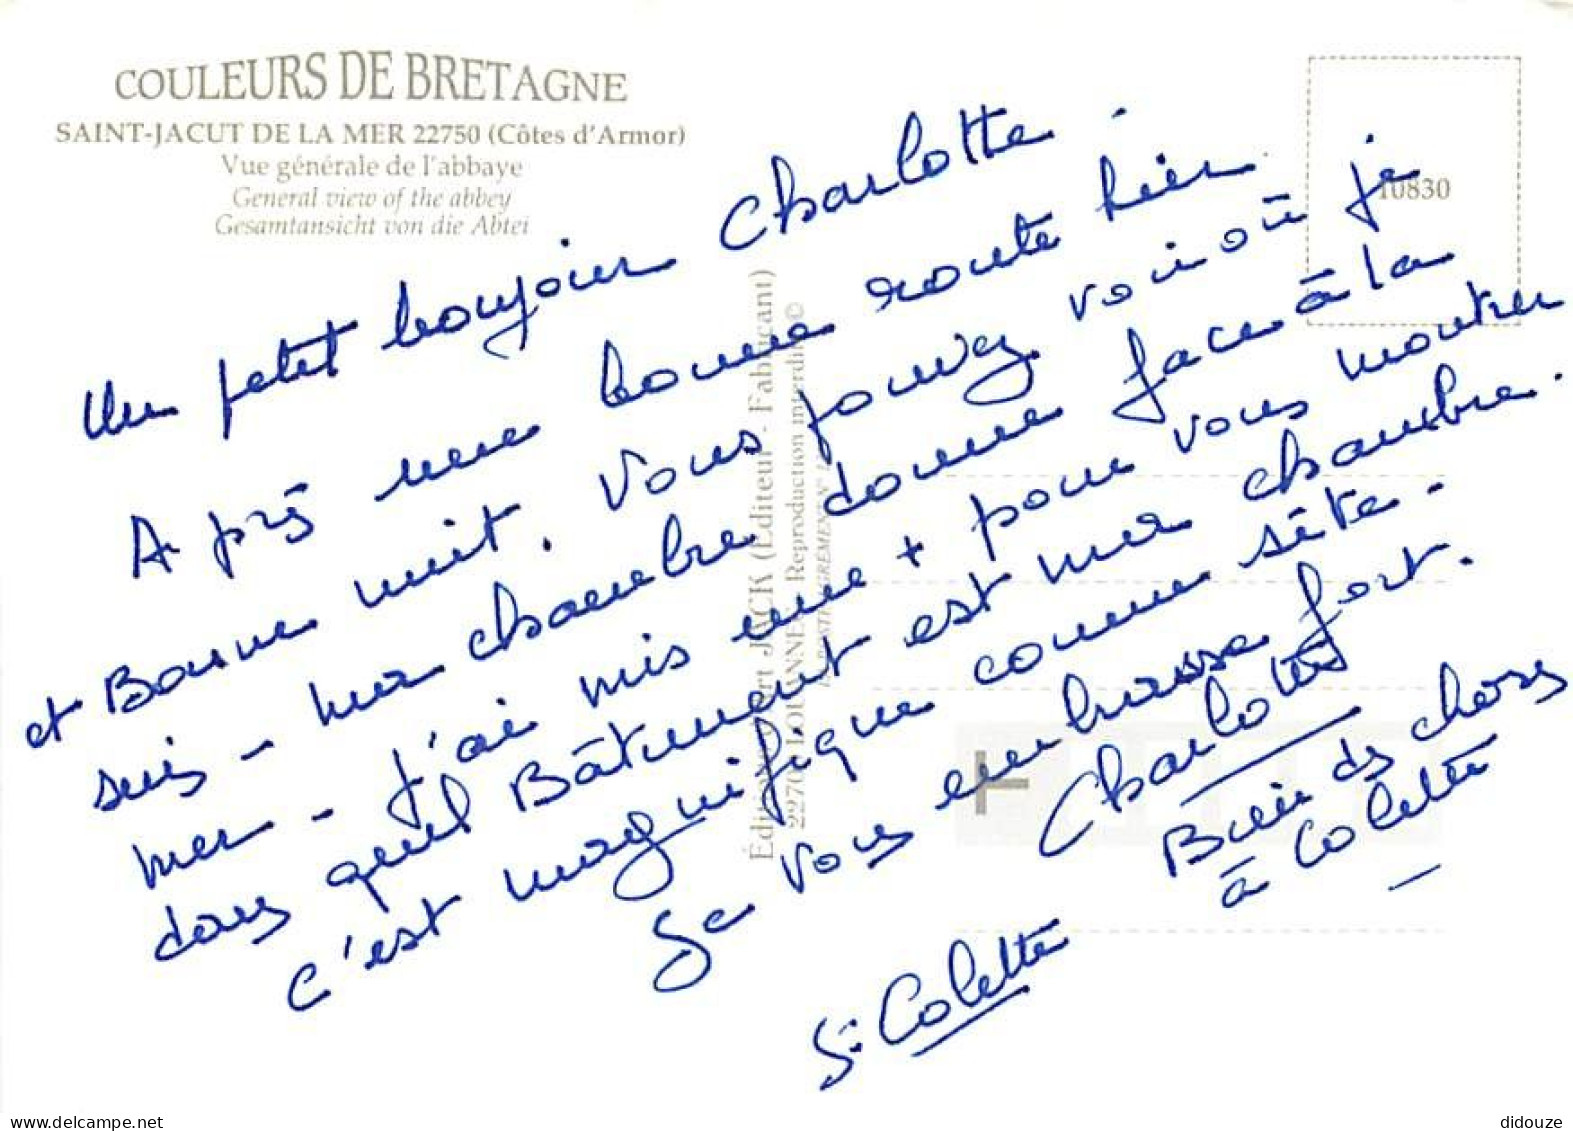 COULEURS DE BRETAGNE
SAINT-JACUT DE LA MER 22750 (Côtes d'Armor)
Vue générale de l'abbaye
General view of the abbey
Gesamtansicht von die Abtei
10830
Un petit bonjour Charlotte -
Après une bonne route hier
et Bonne nuit. Vous pouvez voir où je
suis - ma chambre donne face à la
mer - J'ai mis une + pour vous montrer
dans quel Bâtiment est ma chambre.
c'est magnifique comme site -
Je vous embrasse fort.
Charlotte
Bien des choses
à Colette
Sr Colette
Éditions d'Art JACK (Éditeur - Fabricant)
LOUANNEC Reproduction interdite ©
AGRÉMENT N°
www.delcampe.net
didouze